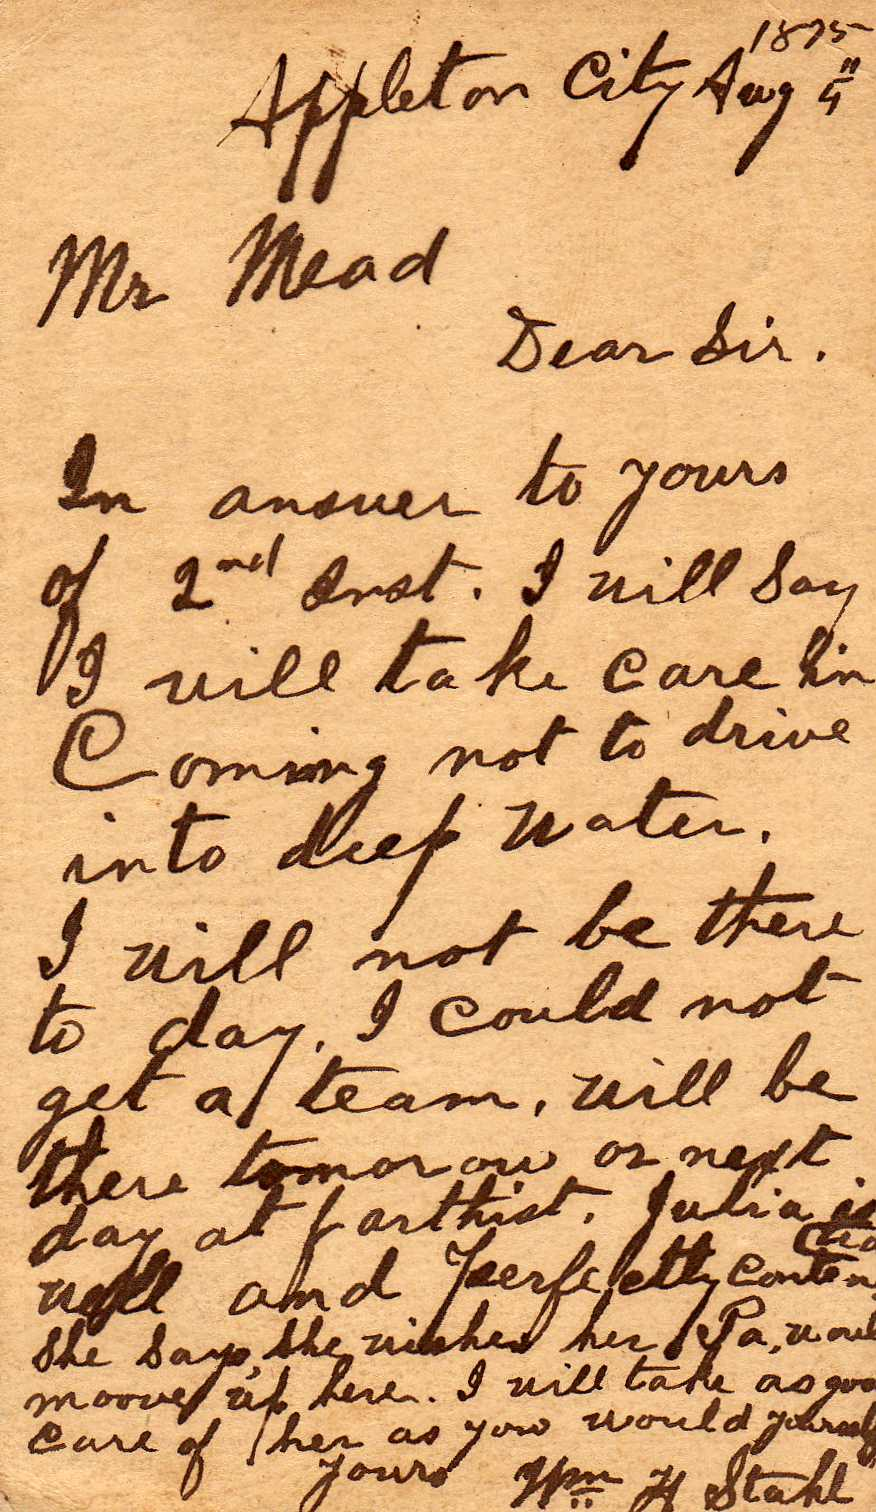 1875
Appleton City Aug 5"
Mr Mead
Dear Sir.
In answer to yours
of 2nd Inst. I will Say
I will take care in
Coming not to drive
into deep water.
I will not be there
to day. I could not
get a team. will be
there tomorow or next
day at farthist. Julia is
well and Perfectly conten
ted
She Says, She wishes her Pa, woul
moove up here. I will take as goo
care of her as you would yourself
Yours Wm H Stahl